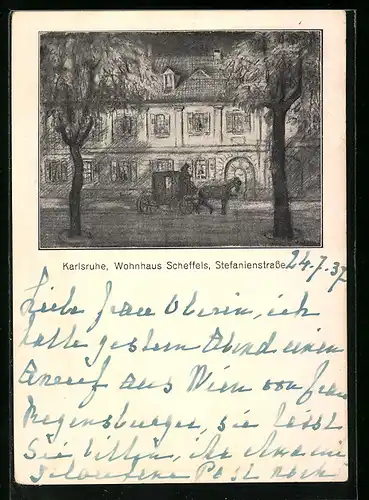 Karlsruhe, Wohnhaus Scheffels, Stefanienstraße
24.7.37
Liebe Frau Oberin, ich
hatte gestern Abend einen
Anruf aus Wien von Frau
Regensburger, sie lässt
Sie bitten, ihr
Post noch